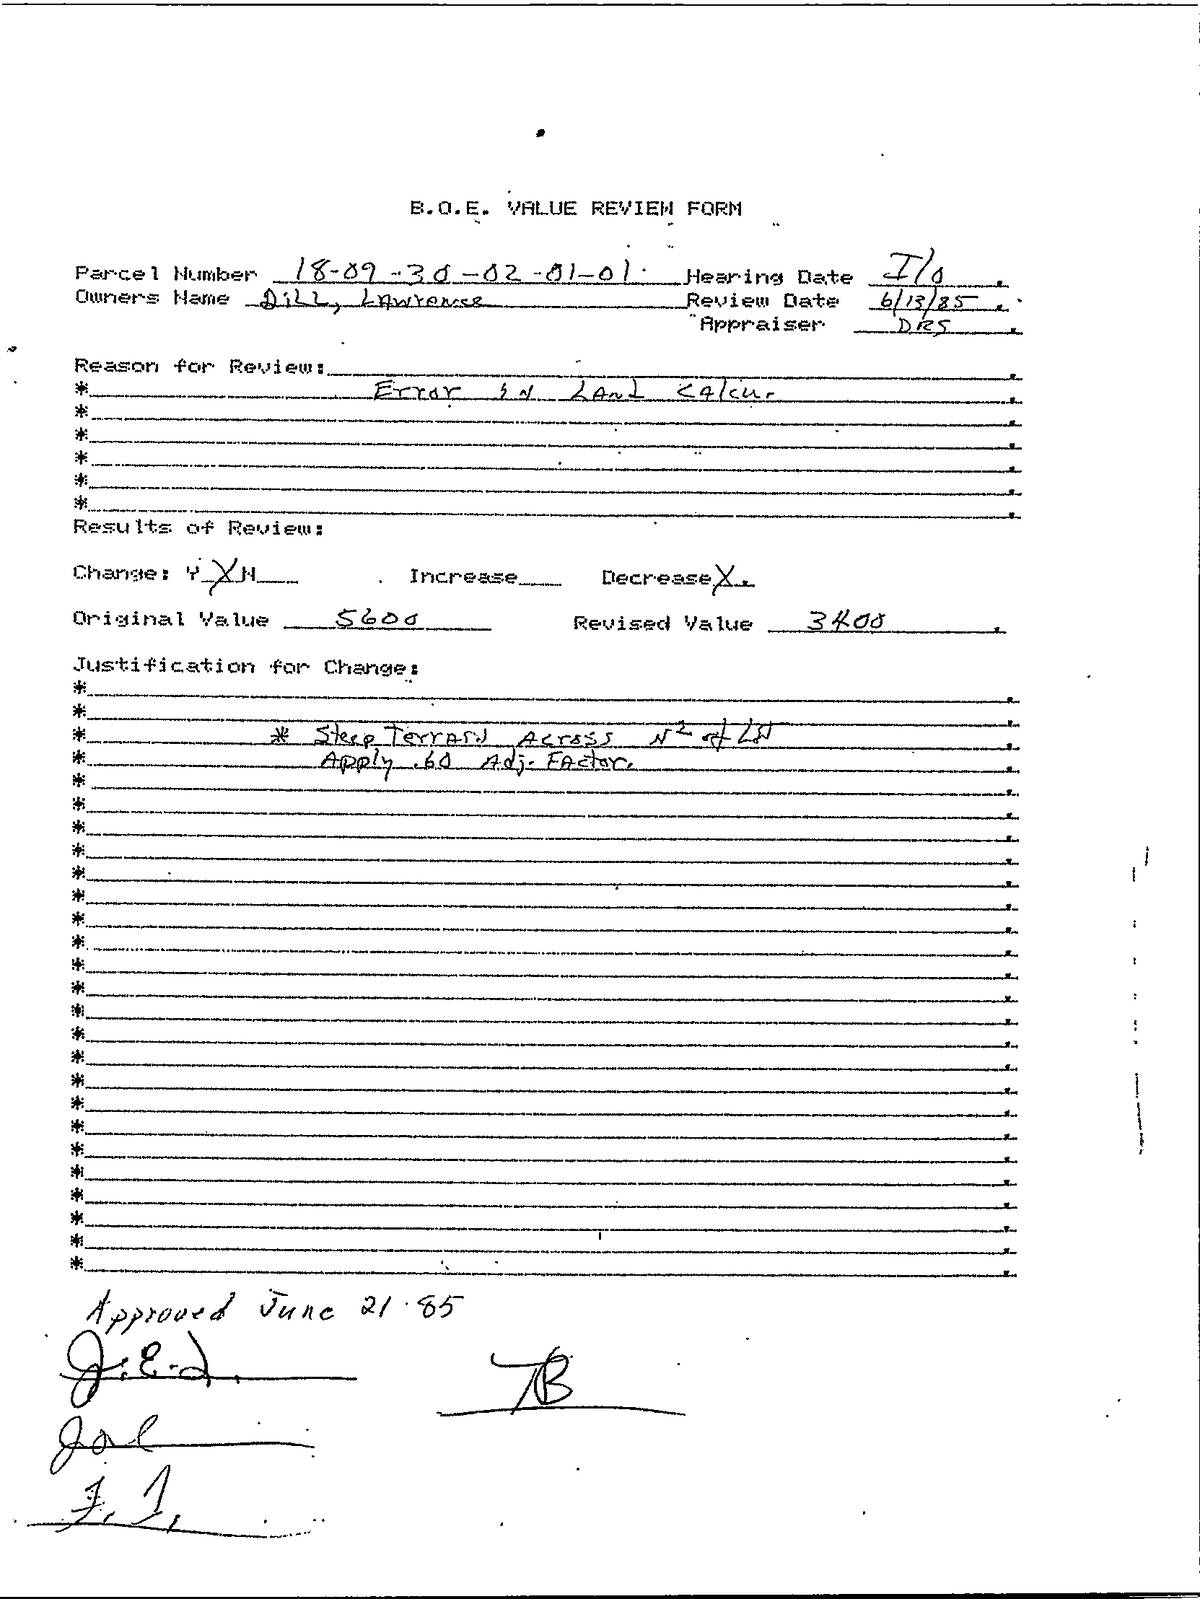 B.O.E. VALUE REVIEW FORM
Parcel Number 18-09-30-02-01-01 Hearing Date I/O
Owners Name Dill, Lawrence Review Date 6/13/85
Appraiser DRS
Reason for Review:
* Error in Land Calcu.
*
*
*
*
*
Results of Review:
Change: Y X N Increase Decrease X
Original Value 5600 Revised Value 3400
Justification for Change:
*
*
* * Steep Terrain Across N² of
* Apply .60 Adj. Factor.
*
*
*
*
*
*
*
*
*
*
*
*
*
*
*
*
*
*
*
*
*
*
Approved June 21-85
J.E.L.
TB
Jal